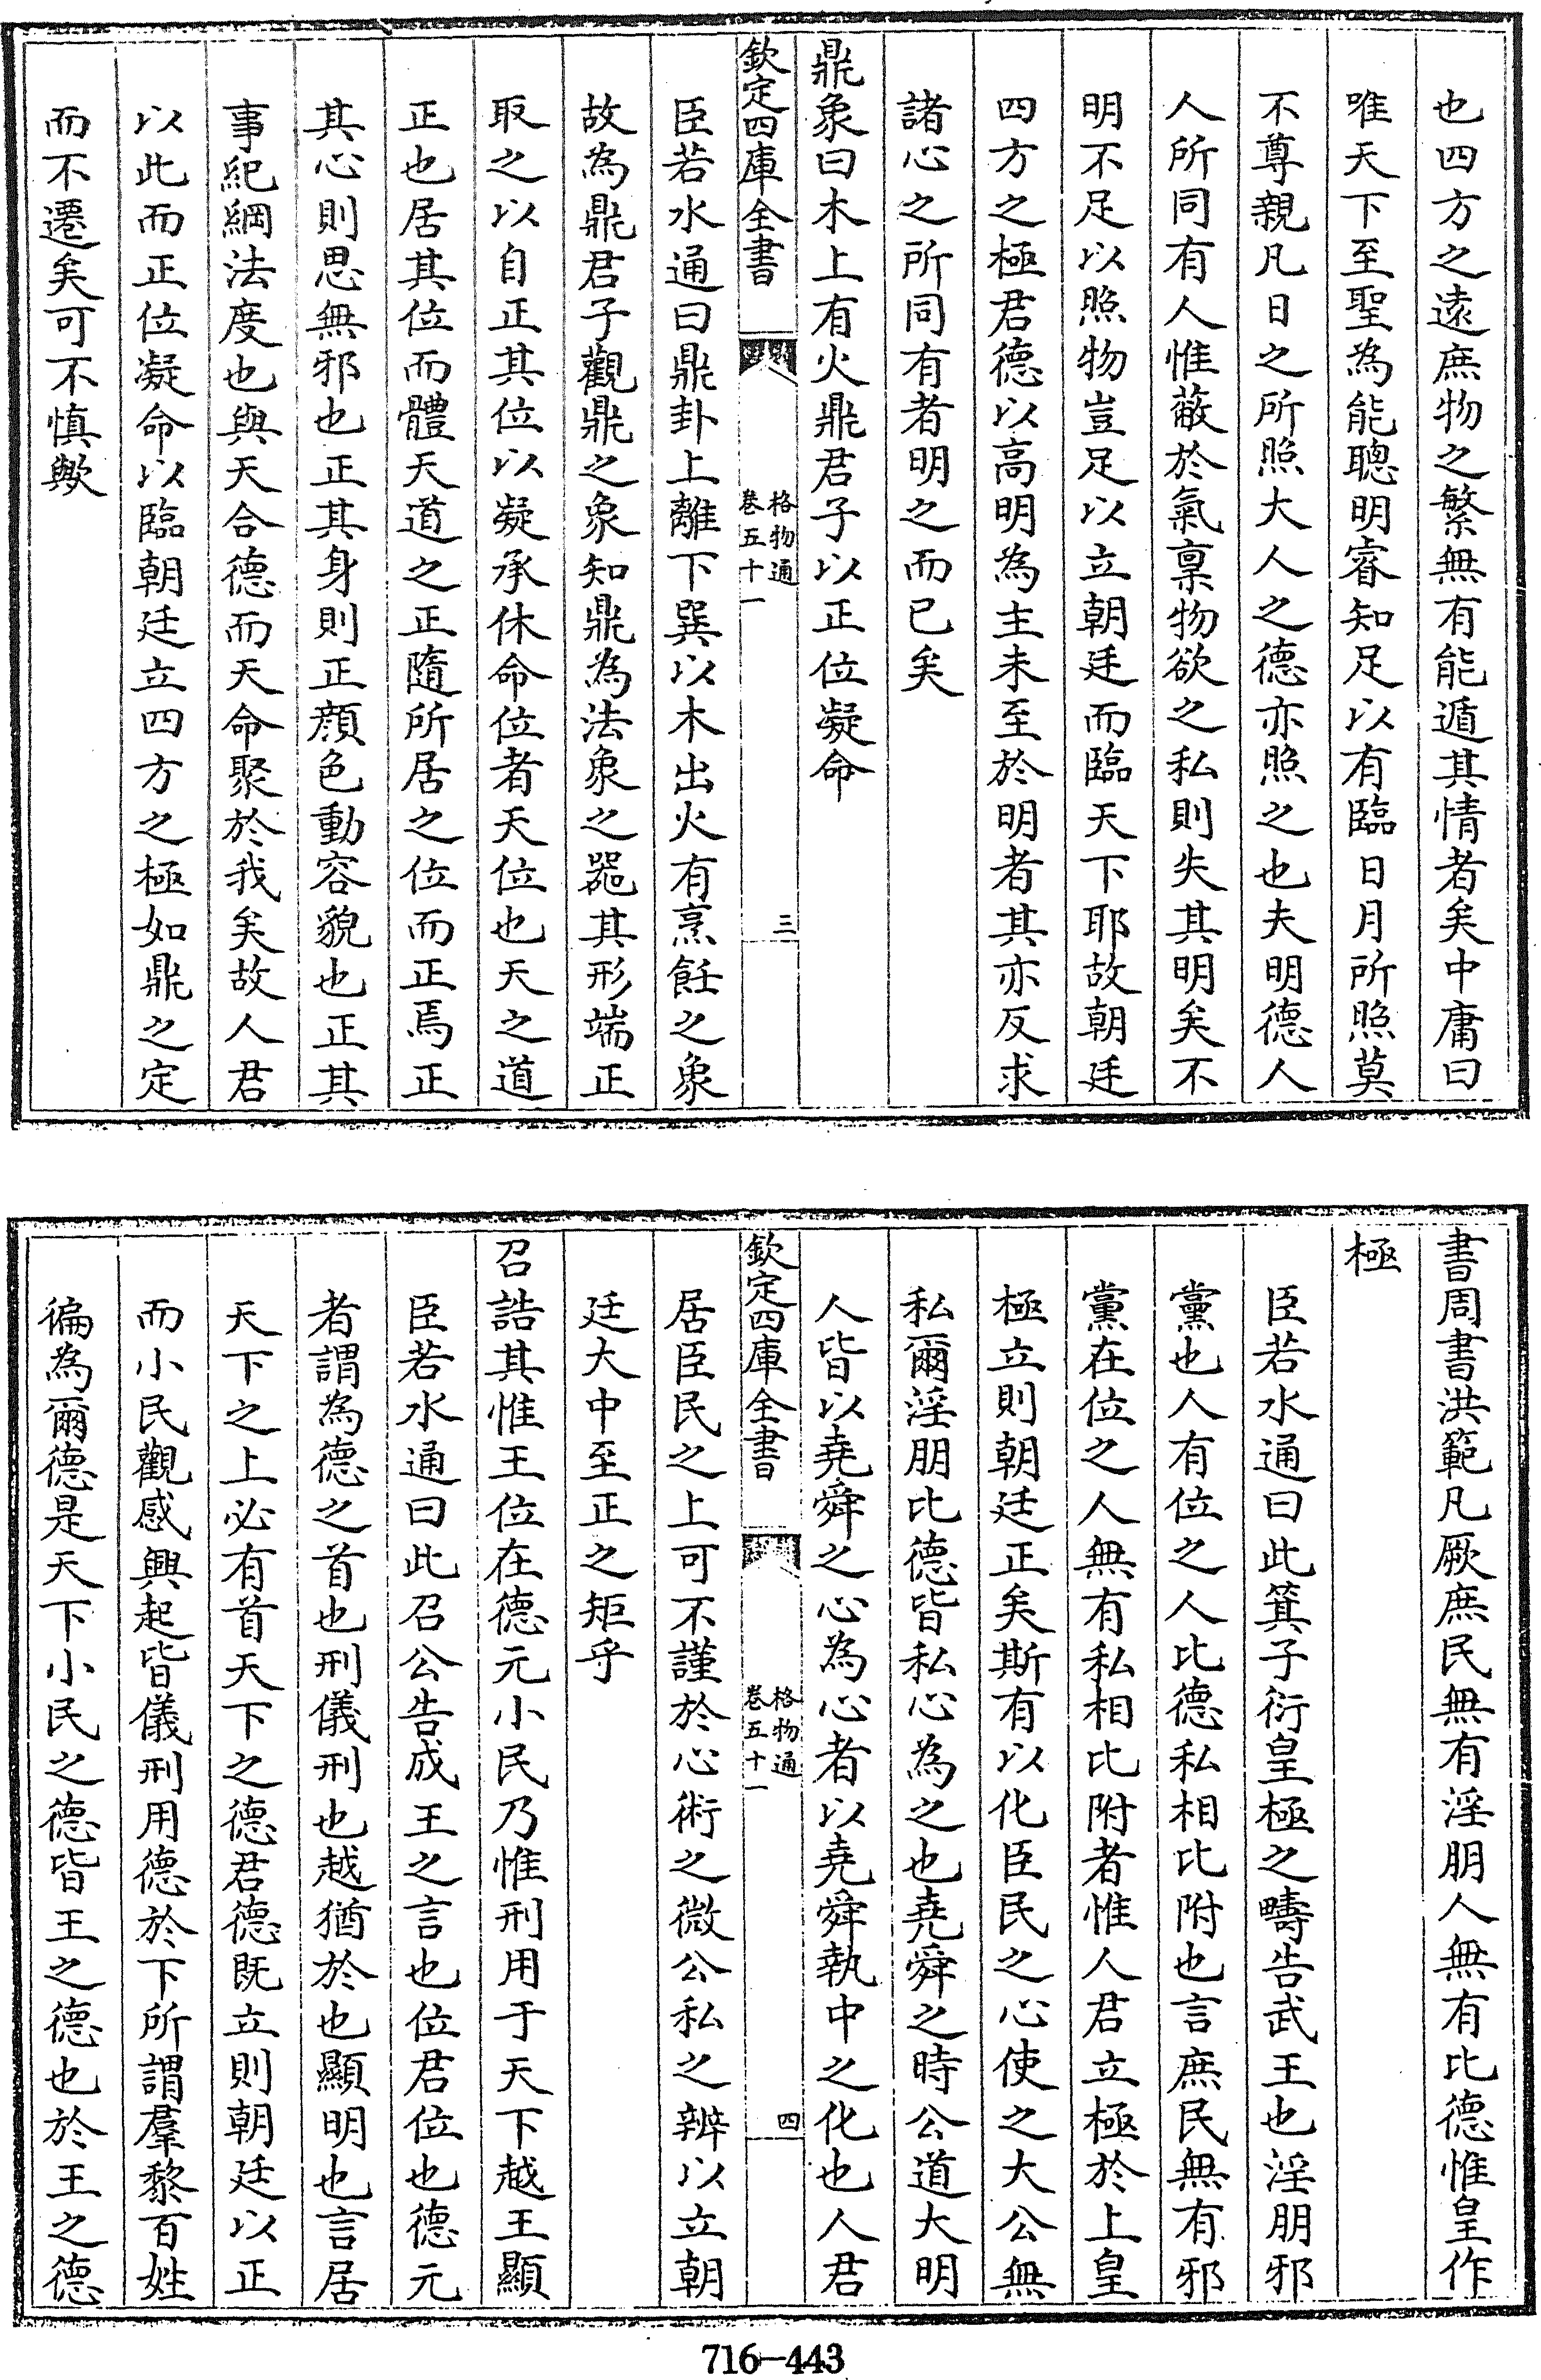 也四方之遠庶物之繁無有能遁其情者矣中庸曰
唯天下至聖為能聰明睿知足以有臨日月所照莫
不尊親凡日之所照大人之德亦照之也夫明德人
人所同有人惟蔽於氣稟物欲之私則失其明矣不
明不足以照物豈足以立朝廷而臨天下耶故朝廷
四方之極君德以高明為主未至於明者其亦反求
諸心之所同有者明之而已矣
鼎象曰木上有火鼎君子以正位凝命
欽定四庫全書
格物通
卷五十一
三
臣若水通曰鼎卦上離下巽以木出火有烹飪之象
故為鼎君子觀鼎之象知鼎為法象之器其形端正
取之以自正其位以凝承休命位者天位也天之道
正也居其位而體天道之正隨所居之位而正焉正
其心則思無邪也正其身則正顔色動容貌也正其
事紀綱法度也與天合德而天命聚於我矣故人君
以此而正位凝命以臨朝廷立四方之極如鼎之定
而不遷矣可不慎歟
書周書洪範凡厥庶民無有淫朋人無有比德惟皇作
極
臣若水通曰此箕子衍皇極之疇告武王也淫朋邪
黨也人有位之人比德私相比附也言庶民無有邪
黨在位之人無有私相比附者惟人君立極於上皇
極立則朝廷正矣斯有以化臣民之心使之大公無
私爾淫朋比德皆私心為之也堯舜之時公道大明
人皆以堯舜之心為心者以堯舜執中之化也人君
欽定四庫全書
格物通
卷五十一
四
居臣民之上可不謹於心術之微公私之辨以立朝
廷大中至正之矩乎
召誥其惟王位在德元小民乃惟刑用于天下越王顯
臣若水通曰此召公告成王之言也位君位也德元
者謂為德之首也刑儀刑也越猶於也顯明也言居
天下之上必有首天下之德君德既立則朝廷以正
而小民觀感興起皆儀刑用德於下所謂羣黎百姓
徧為爾德是天下小民之德皆王之德也於王之德
716-443